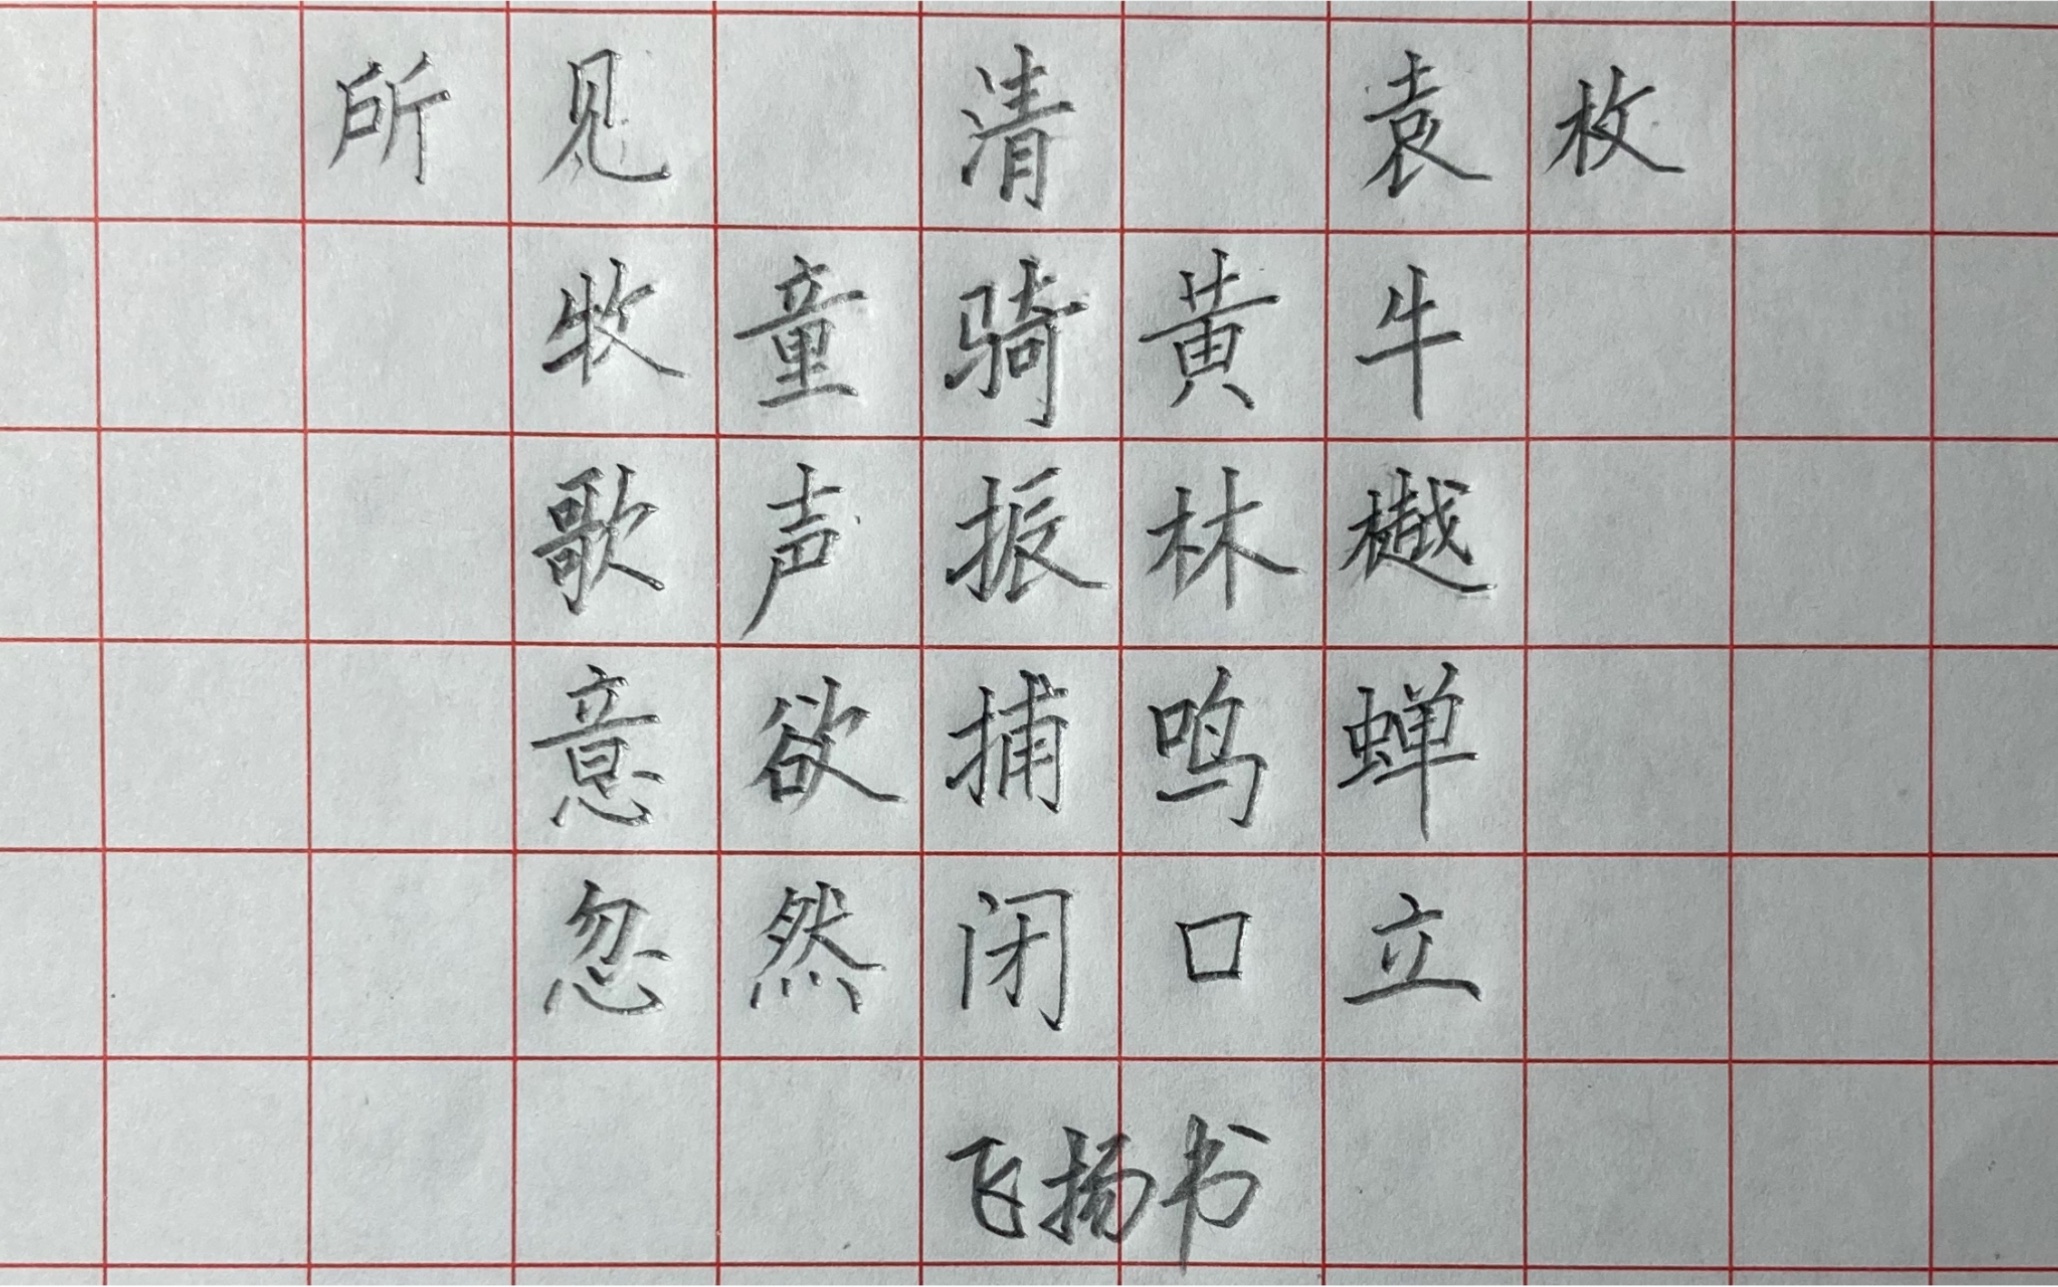 所见 清 袁枚
牧童骑黄牛
歌声振林樾
意欲捕鸣蝉
忽然闭口立
飞扬书